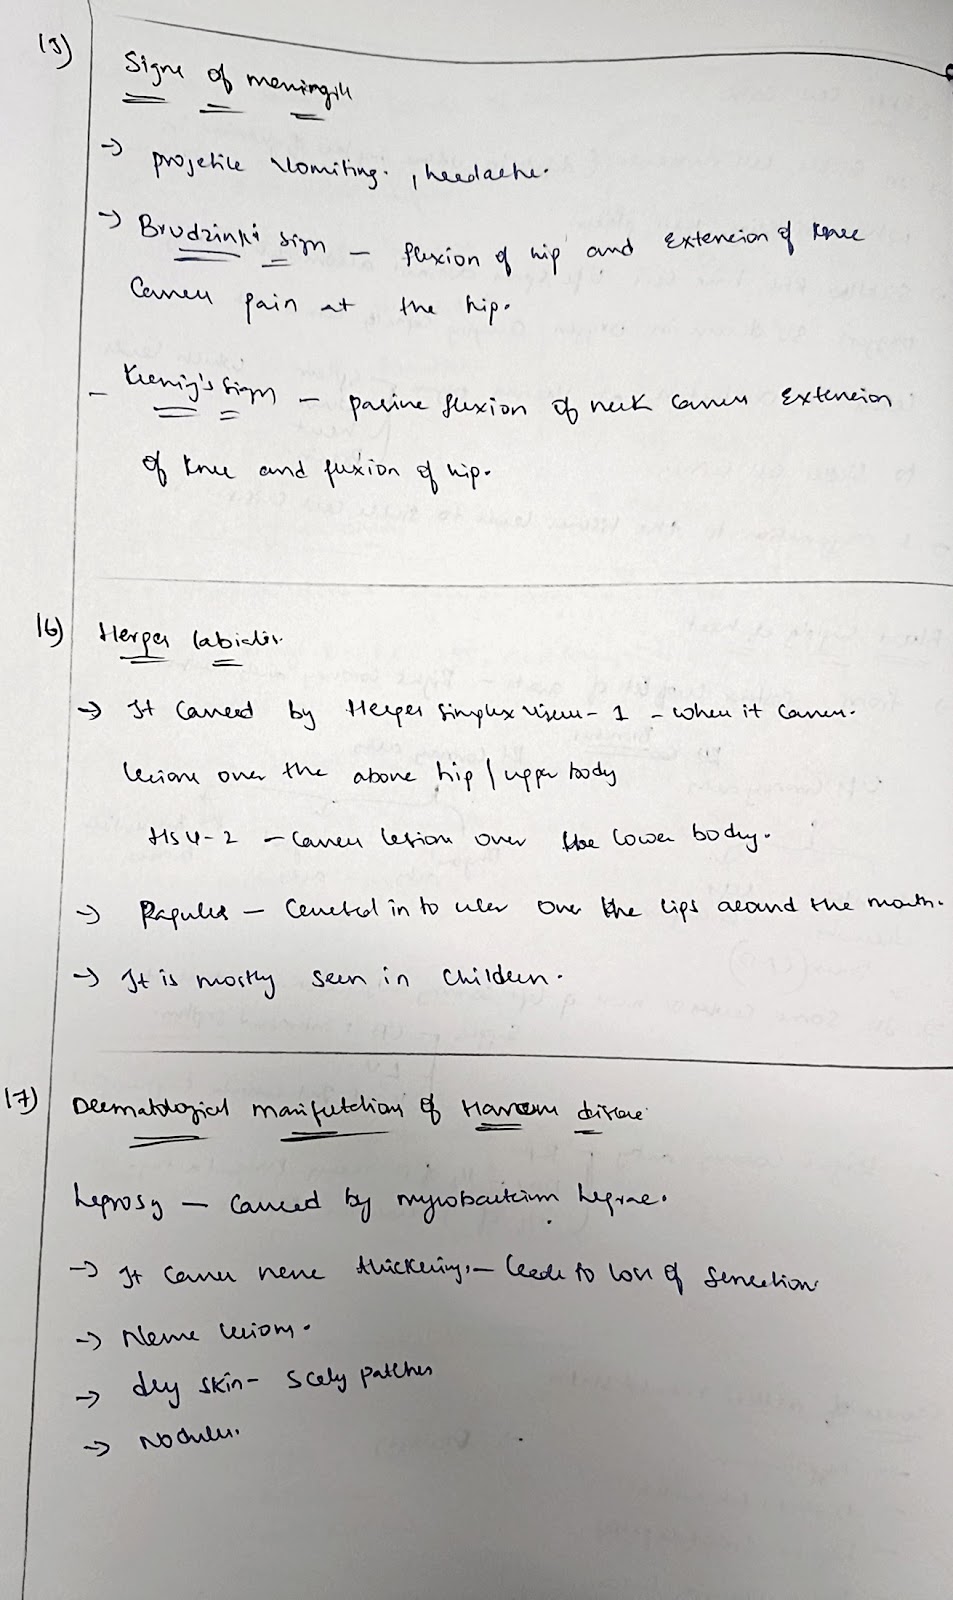 15)
Signs of meningitis
→ projetile vlomiting. , headache.
→ Brudzinki sign – flexion of hip and Extension of knee
Causes pain at the hip.
– Kernig's sign – passive flexion of neck causes Extension
of knee and fuxion of hip.
16) Herpes labialis.
→ It Caused by Herpes Simplex virus - 1 - when it causes.
lesions over the above hip / upper body
HSV-2 – Causes lesions over the lower body.
→ Papules – in to ulcer over the lips around the mouth.
→ It is mostly seen in Children.
17) Dermatological manifestations of Hansens disease
Leprosy – Caused by mycobacterium Leprae.
→ It Causes nerve thickening, – leads to loss of sensation
→ Nerve lesions.
→ dry skin - Scaly patches
→ Nodules.